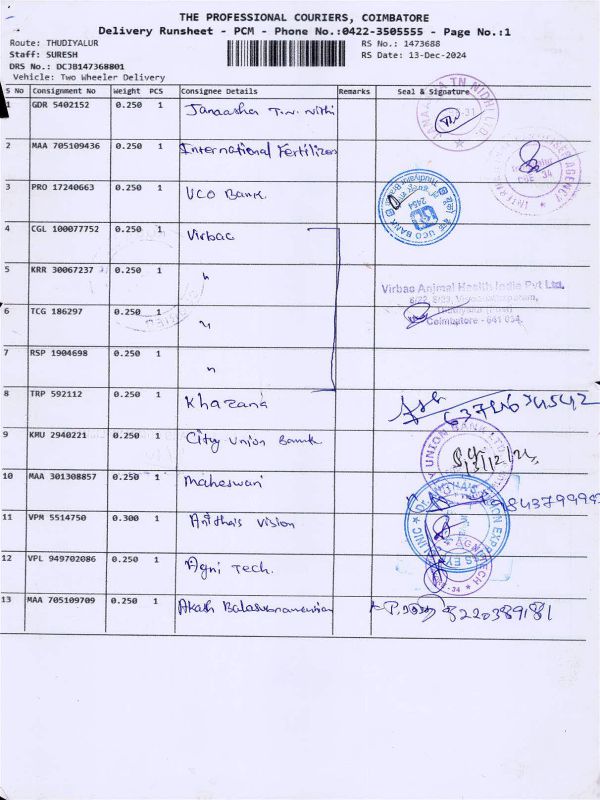 THE PROFESSIONAL COURIERS, COIMBATORE
Delivery Runsheet - PCM - Phone No.:0422-3505555 - Page No.:1
Route: THUDIYALUR RS No.: 1473688
Staff: SURESH RS Date: 13-Dec-2024
DRS No.: DCJB147368801
Vehicle: Two Wheeler Delivery
S No Consignment No Weight PCS Consignee Details Remarks Seal & Signature
1 GDR 5402152 0.250 1 Janaasha T.N. Nidhi
2 MAA 705109436 0.250 1 International Fertilizer
3 PRO 17240663 0.250 1 UCO Bank
UCO BANK
2454
4 CGL 100077752 0.250 1 Virbac
5 KRR 30067237 0.250 1 "
Virbac Animal Health India Pvt Ltd.
6 TCG 186297 0.250 1 "
Coimbatore - 641 034.
7 RSP 1904698 0.250 1 "
8 TRP 592112 0.250 1 Khazana
9 KMU 2940221 0.250 1 City Union Bank
UNION BANK LTD
13/12/24
10 MAA 301308857 0.250 1 Maheswari
11 VPM 5514750 0.300 1 Anitha's Vision
12 VPL 949702086 0.250 1 Agni Tech.
13 MAA 705109709 0.250 1 Akash 8220389181